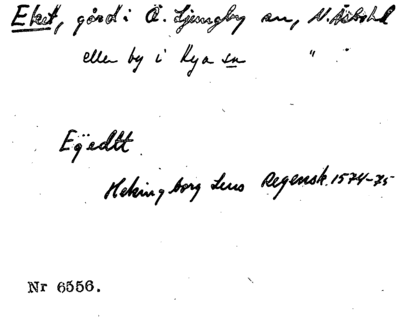 Eket, gård i Ö. Ljungby sn, N. Åsbohd
eller by i Rya sn " "
Eÿedtt
Helsingborg Lens Regensk. 1574-75
Nr 6556.